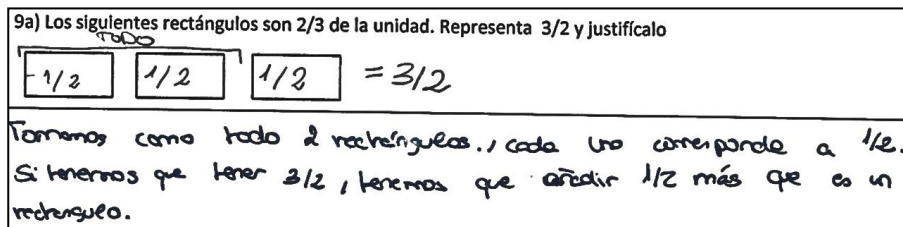 9a) Los siguientes rectángulos son 2/3 de la unidad. Representa 3/2 y justifícalo
TODO
1/2 1/2 1/2 = 3/2
Tomamos como todo 2 rectángulos., cada uno corresponde a 1/2.
Si tenemos que tener 3/2, tenemos que añadir 1/2 más que es un
rectángulo.